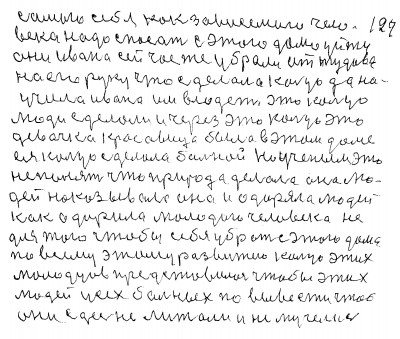 самого себя как зависемого чело- 127
века надо спосат с этого дома уйту
они ивана сей час же убрали от тудова
на его руку что сделала колцо да на-
учила ивана им владет, это колцо
люди сделали и через это колцо это
девачка красавица была в этом доме
ея колцо сделола болной но ученим это
непонят что природа делала она лю-
дей наказывала она и одоряла людей
как одарила молодого человека не
для того чтобы себя убрат с этого дома
по всему этому развитию колцо этих
молодцов представилоя чтобы этих
людей усех болных по вывести чтоб
они сдесе не литали и не мучелис